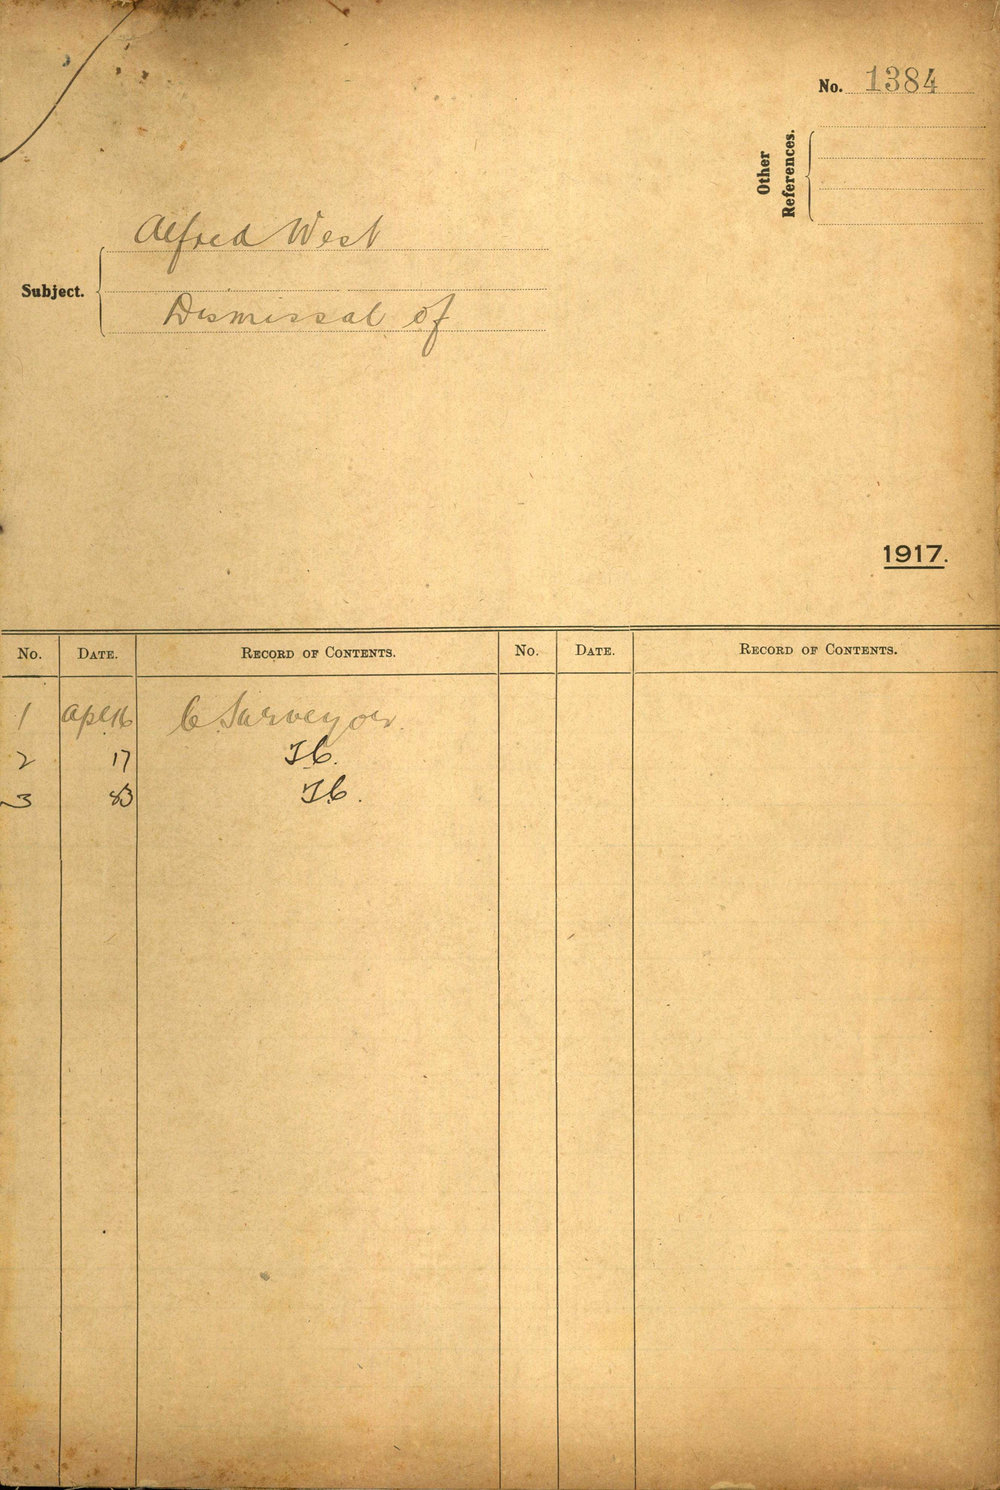 No. 1384
Other
References.
Alfred West
Subject.
Dismissal of
1917.
No. DATE. RECORD OF CONTENTS. No. DATE. RECORD OF CONTENTS.
1 Apl 16 C Surveyor.
2 17 T.C.
3 T.C.